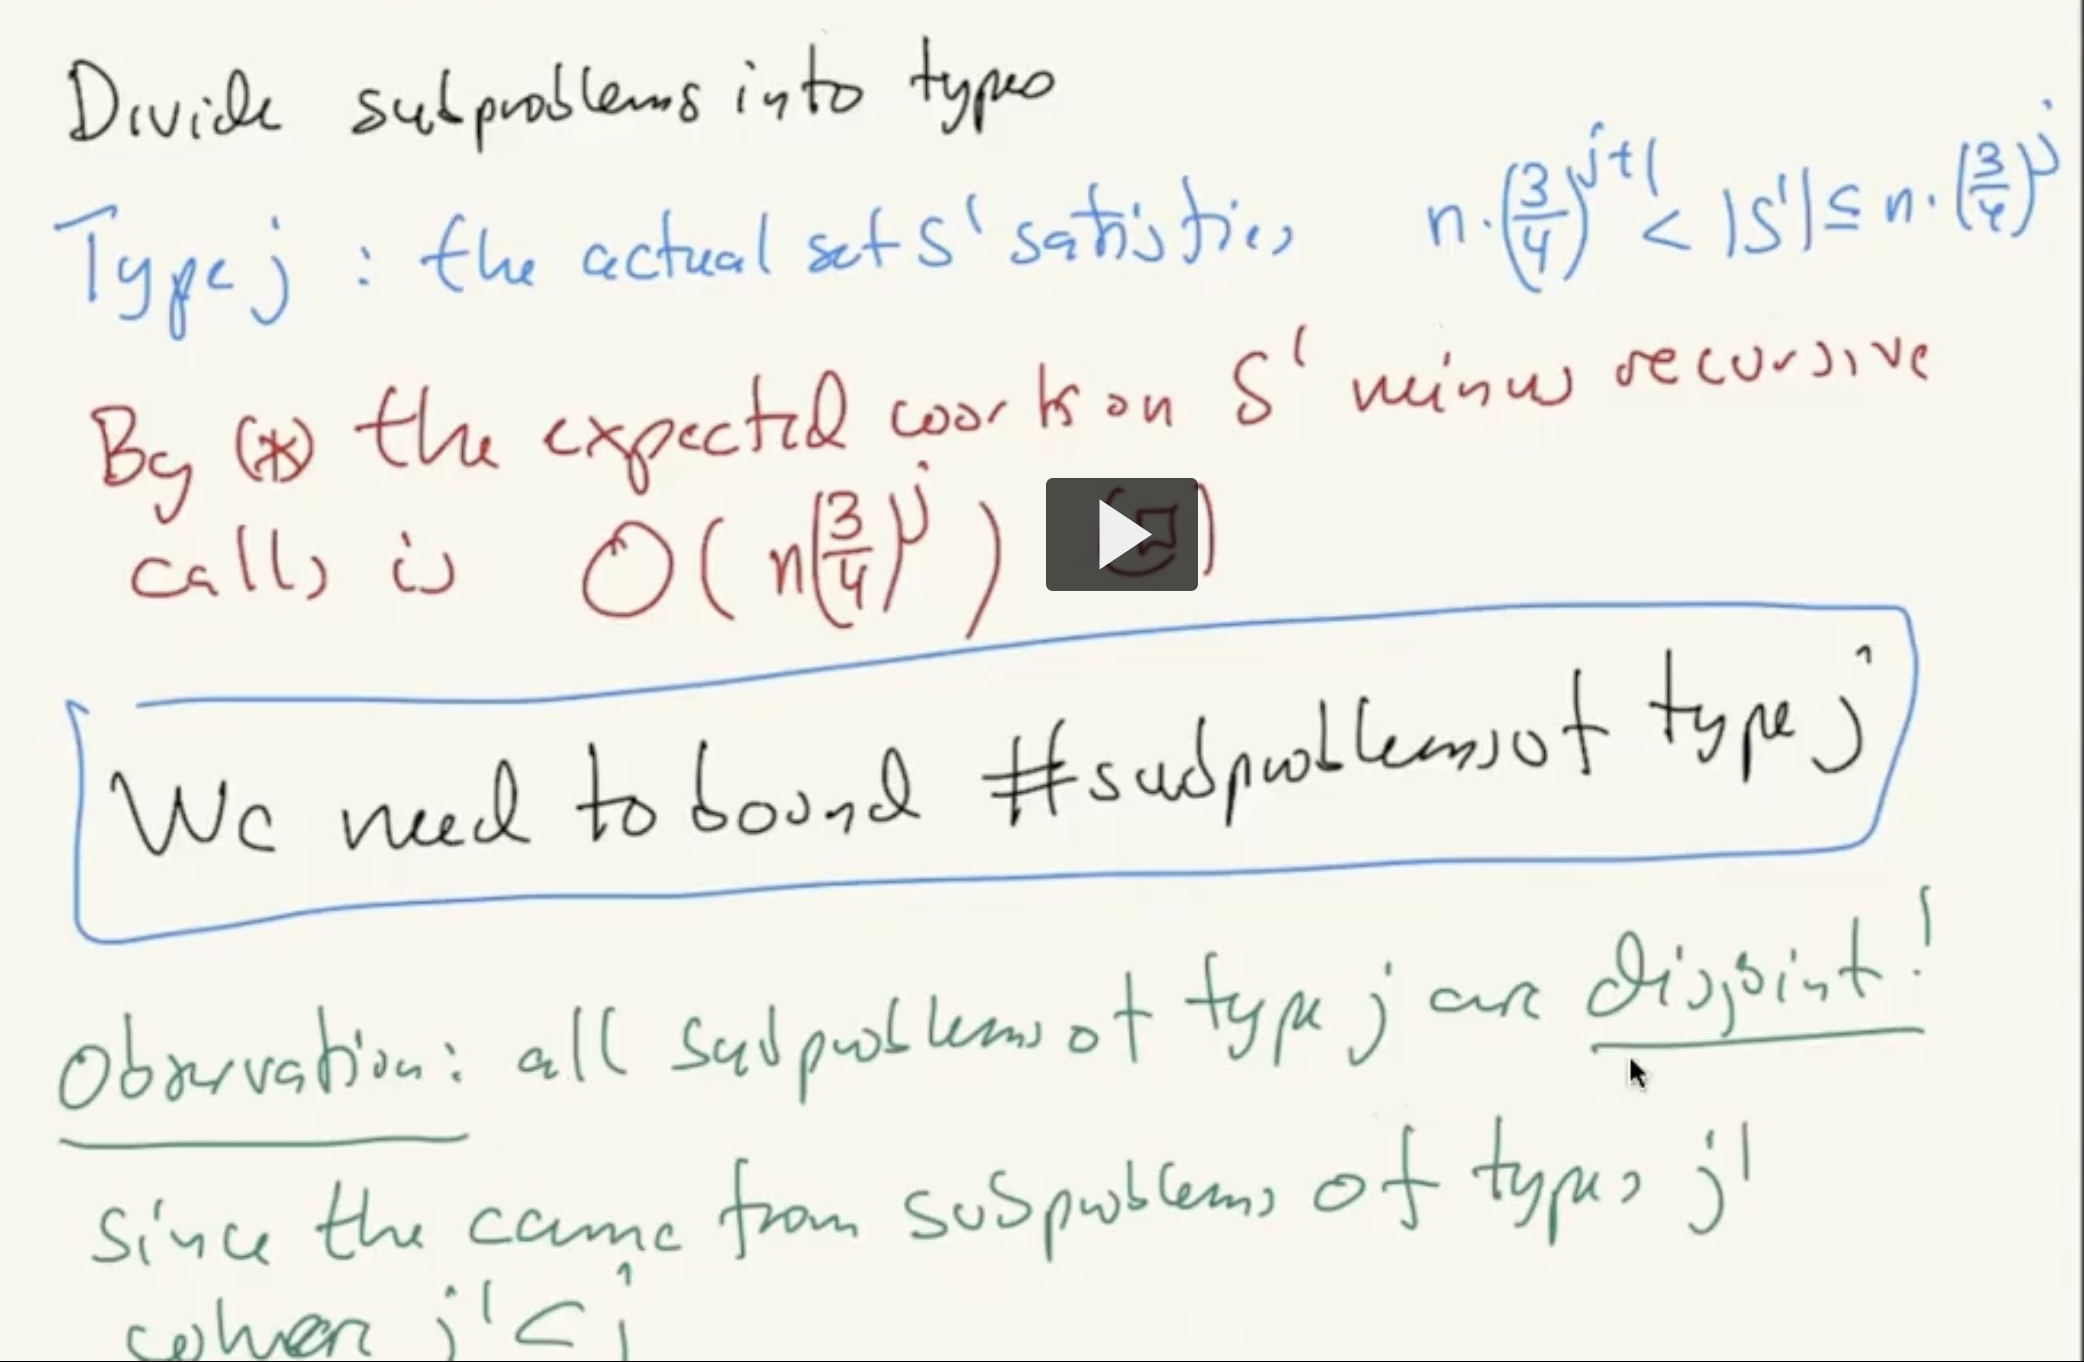 Divide subproblems into types
Type j : the actual set S' satisfies n·(3/4)^{j+1} < |S'| ≤ n·(3/4)^j
By (*) the expected work on S' minus recursive
calls is O(n(3/4)^j)
We need to bound #subproblems of type j
Observation: all subproblems of type j are disjoint!
since the came from subproblems of types j'
when j' < j